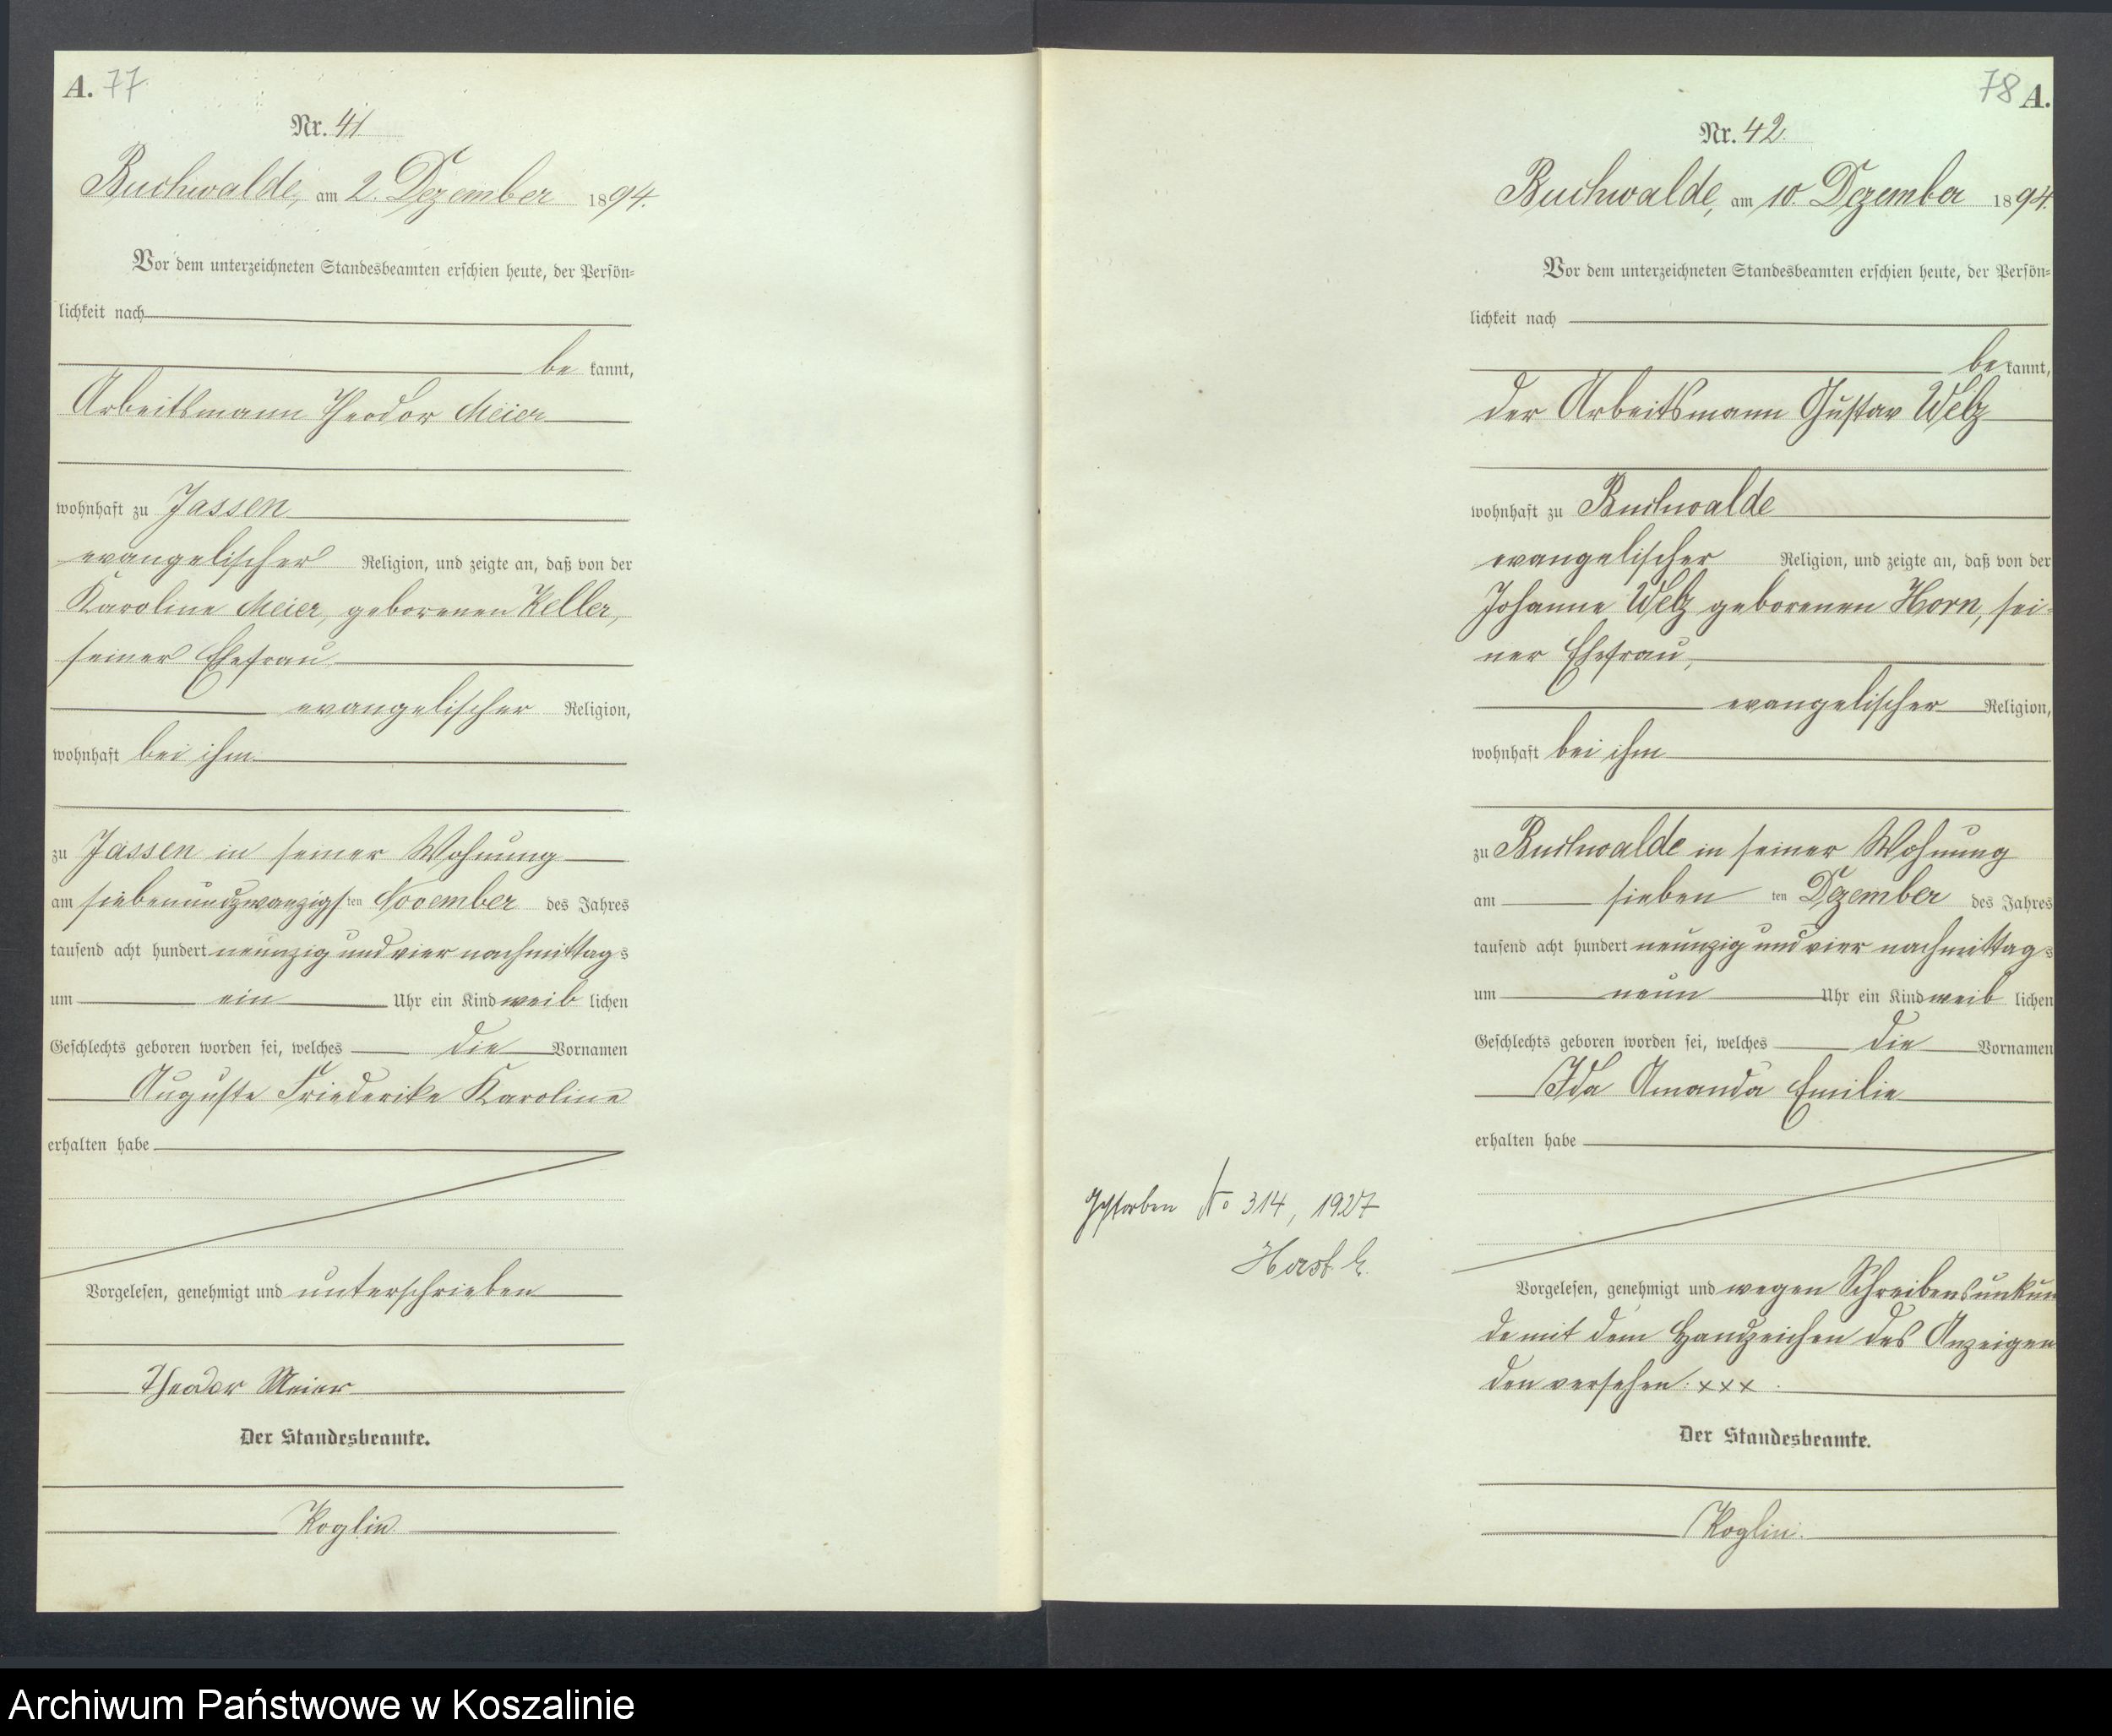 A. 77
Nr. 41
Buchwalde, am 2. Dezember 1894.
Vor dem unterzeichneten Standesbeamten erschien heute, der Persön-
lichkeit nach
be kannt,
Arbeitsmann Theodor Meier
wohnhaft zu Jassen
evangelischer Religion, und zeigte an, daß von der
Karoline Meier, geborenen Keller,
seiner Ehefrau
evangelischer Religion,
wohnhaft bei ihm
zu Jassen in seiner Wohnung
am siebenundzwanzigsten November des Jahres
tausend acht hundert neunzig und vier nachmittags
um ein Uhr ein Kind weib lichen
Geschlechts geboren worden sei, welches die Vornamen
Auguste Friederike Karoline
erhalten habe
Vorgelesen, genehmigt und unterschrieben
Theodor Meier
Der Standesbeamte.
Koglin
78 A.
Nr. 42.
Buchwalde, am 10. Dezember 1894.
Vor dem unterzeichneten Standesbeamten erschien heute, der Persön-
lichkeit nach
be kannt,
der Arbeitsmann Gustav Welz
wohnhaft zu Buchwalde
evangelischer Religion, und zeigte an, daß von der
Johanne Welz geborenen Horn, sei-
ner Ehefrau,
evangelischer Religion,
wohnhaft bei ihm
zu Buchwalde in seiner Wohnung
am sieben ten Dezember des Jahres
tausend acht hundert neunzig und vier nachmittags
um neun Uhr ein Kind weib lichen
Geschlechts geboren worden sei, welches die Vornamen
Ida Amanda Emilie
erhalten habe
Gestorben No 314, 1927
Vorgelesen, genehmigt und wegen Schreibensunkun
de mit dem Handzeichen des Anzeigen
den versehen. xxx.
Der Standesbeamte.
Koglin.
Archiwum Państwowe w Koszalinie